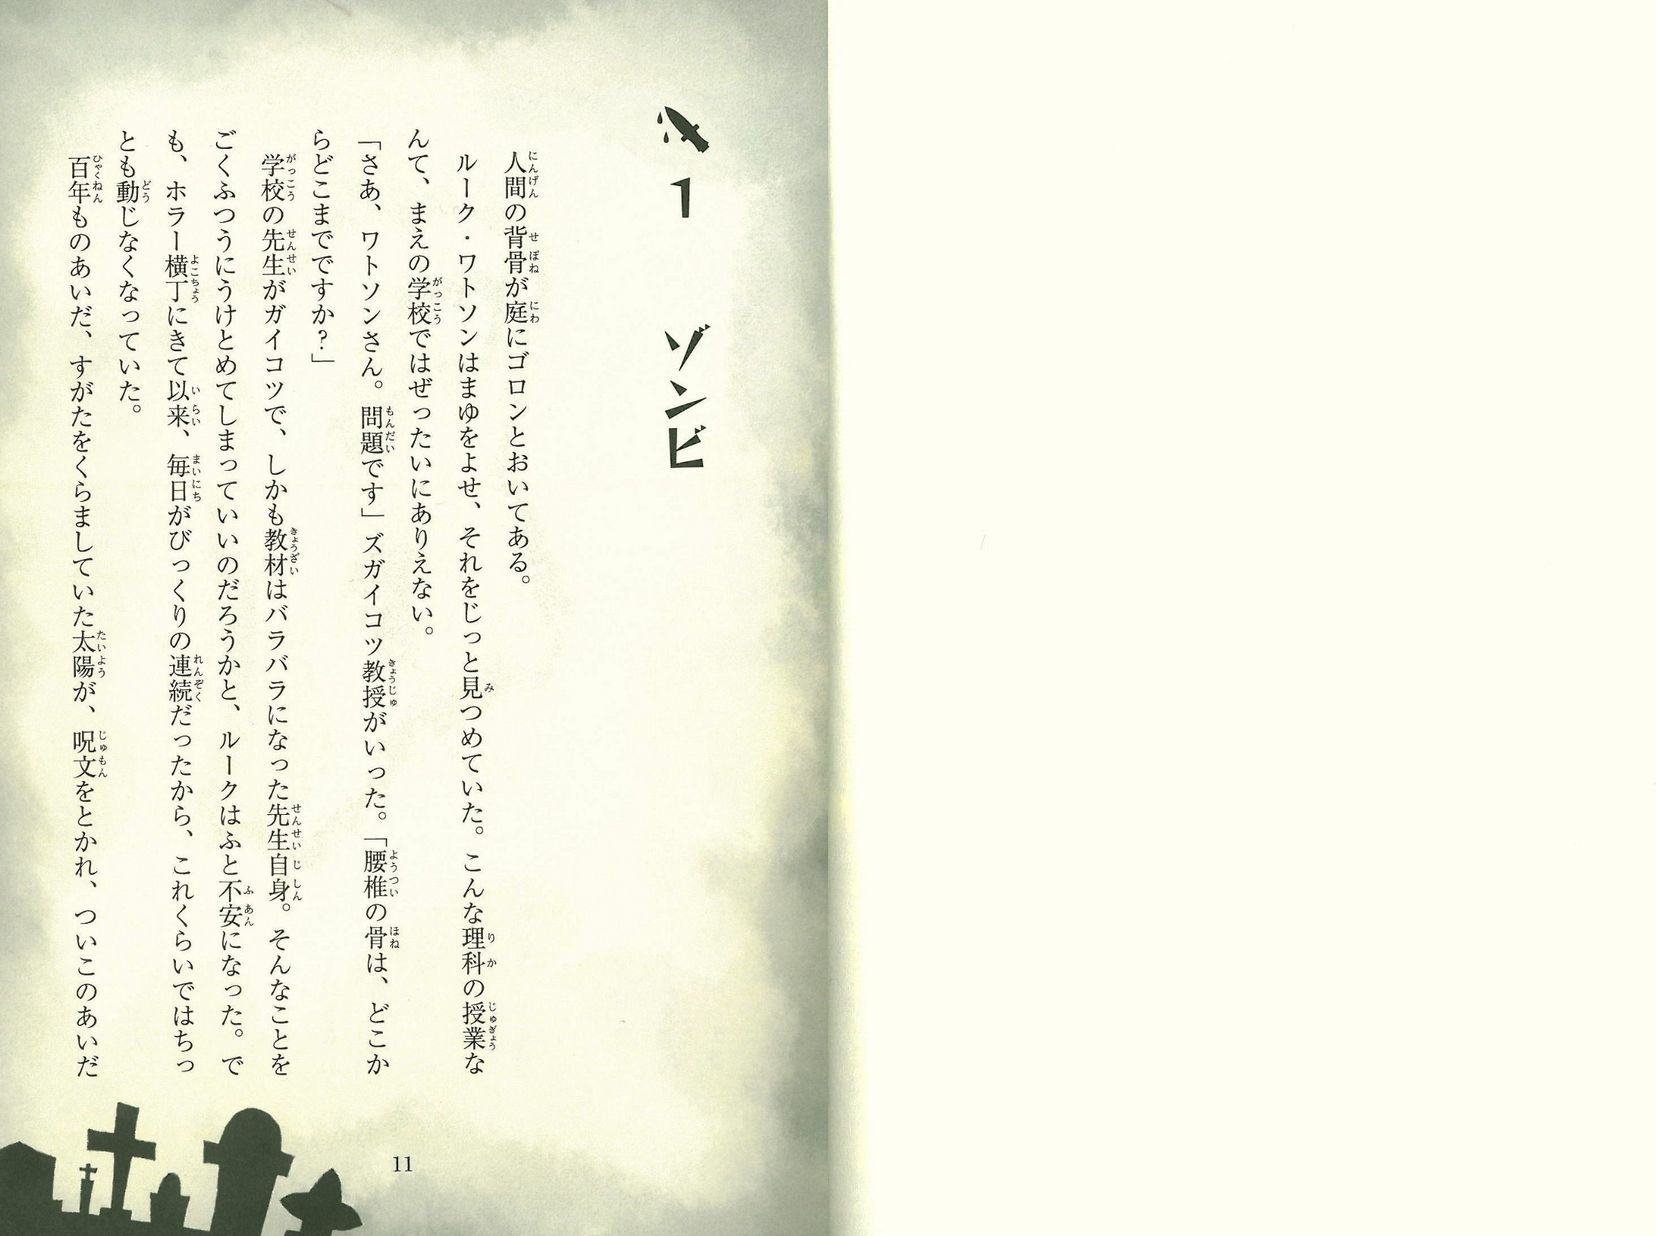 1 ゾンビ
人間の背骨が庭にゴロンとおいてある。
ルーク・ワトソンはまゆをよせ、それをじっと見つめていた。こんな理科の授業な
んて、まえの学校ではぜったいにありえない。
「さあ、ワトソンさん。問題です」ズガイコツ教授がいった。「腰椎の骨は、どこか
らどこまでですか？」
学校の先生がガイコツで、しかも教材はバラバラになった先生自身。そんなことを
ごくふつうにうけとめてしまっていいのだろうかと、ルークはふと不安になった。で
も、ホラー横丁にきて以来、毎日がびっくりの連続だったから、これくらいではちっ
とも動じなくなっていた。
百年ものあいだ、すがたをくらましていた太陽が、呪文をとかれ、ついこのあいだ
11